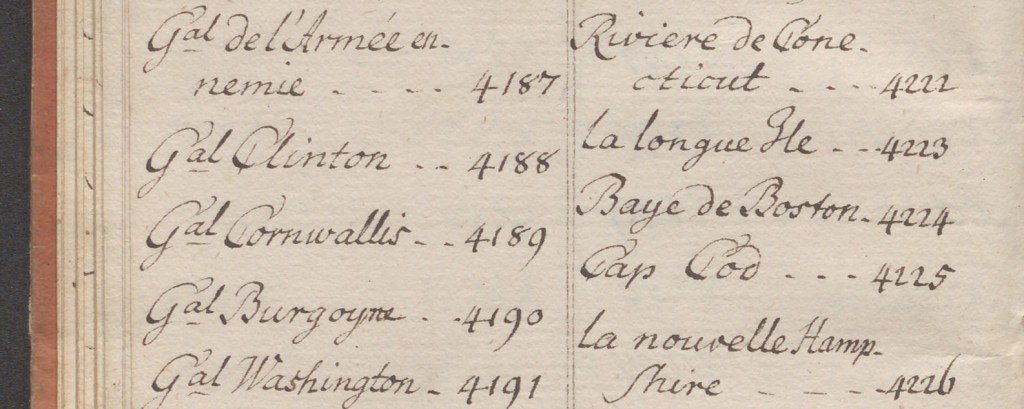 Gal de l'Armée en-
nemie - - - - 4187
Gal Clinton - - 4188
Gal Cornwallis - - 4189
Gal Burgoyne - - 4190
Gal Washington - 4191
Riviere de Cone-
cticut - - - 4222
la longue Ile - - - 4223
Baye de Boston - 4224
Cap Cod - - - 4225
la nouvelle Hamp-
shire - - - - 4226